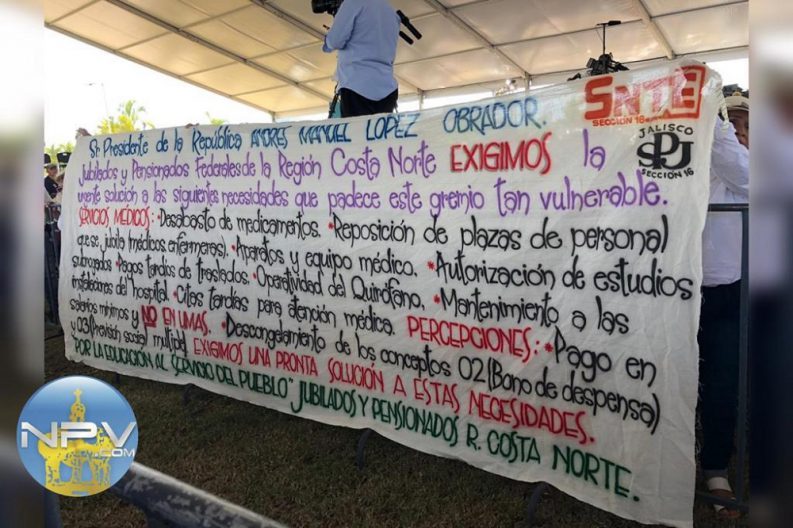 Sr. Presidente de la República ANDRES MANUEL LOPEZ OBRADOR.
Jubilados y Pensionados Federales de la Región Costa Norte EXIGIMOS la
urgente solución a las siguientes necesidades que padece este gremio tan vulnerable.
SERVICIOS MÉDICOS: •Desabasto de medicamentos. •Reposición de plazas de personal
que se jubila (médicos, enfermeras). •Aparatos y equipo médico. •Autorización de estudios
subrogados •Pagos tardíos de traslados. •Operatividad del Quirófano. •Mantenimiento a las
instalaciones del hospital. •Citas tardías para atención médica. PERCEPCIONES: •Pago en
salarios mínimos y NO EN UMAS. •Descongelamiento de los conceptos 02 (Bono de despensa)
y 03 (Previsión social multiple) EXIGIMOS UNA PRONTA SOLUCIÓN A ESTAS NECESIDADES.
"POR LA EDUCACIÓN AL SERVICIO DEL PUEBLO" JUBILADOS Y PENSIONADOS R. COSTA NORTE.
SNTE
SECCIÓN 16
JALISCO
SPJ
SECCIÓN 16
NPV
.COM